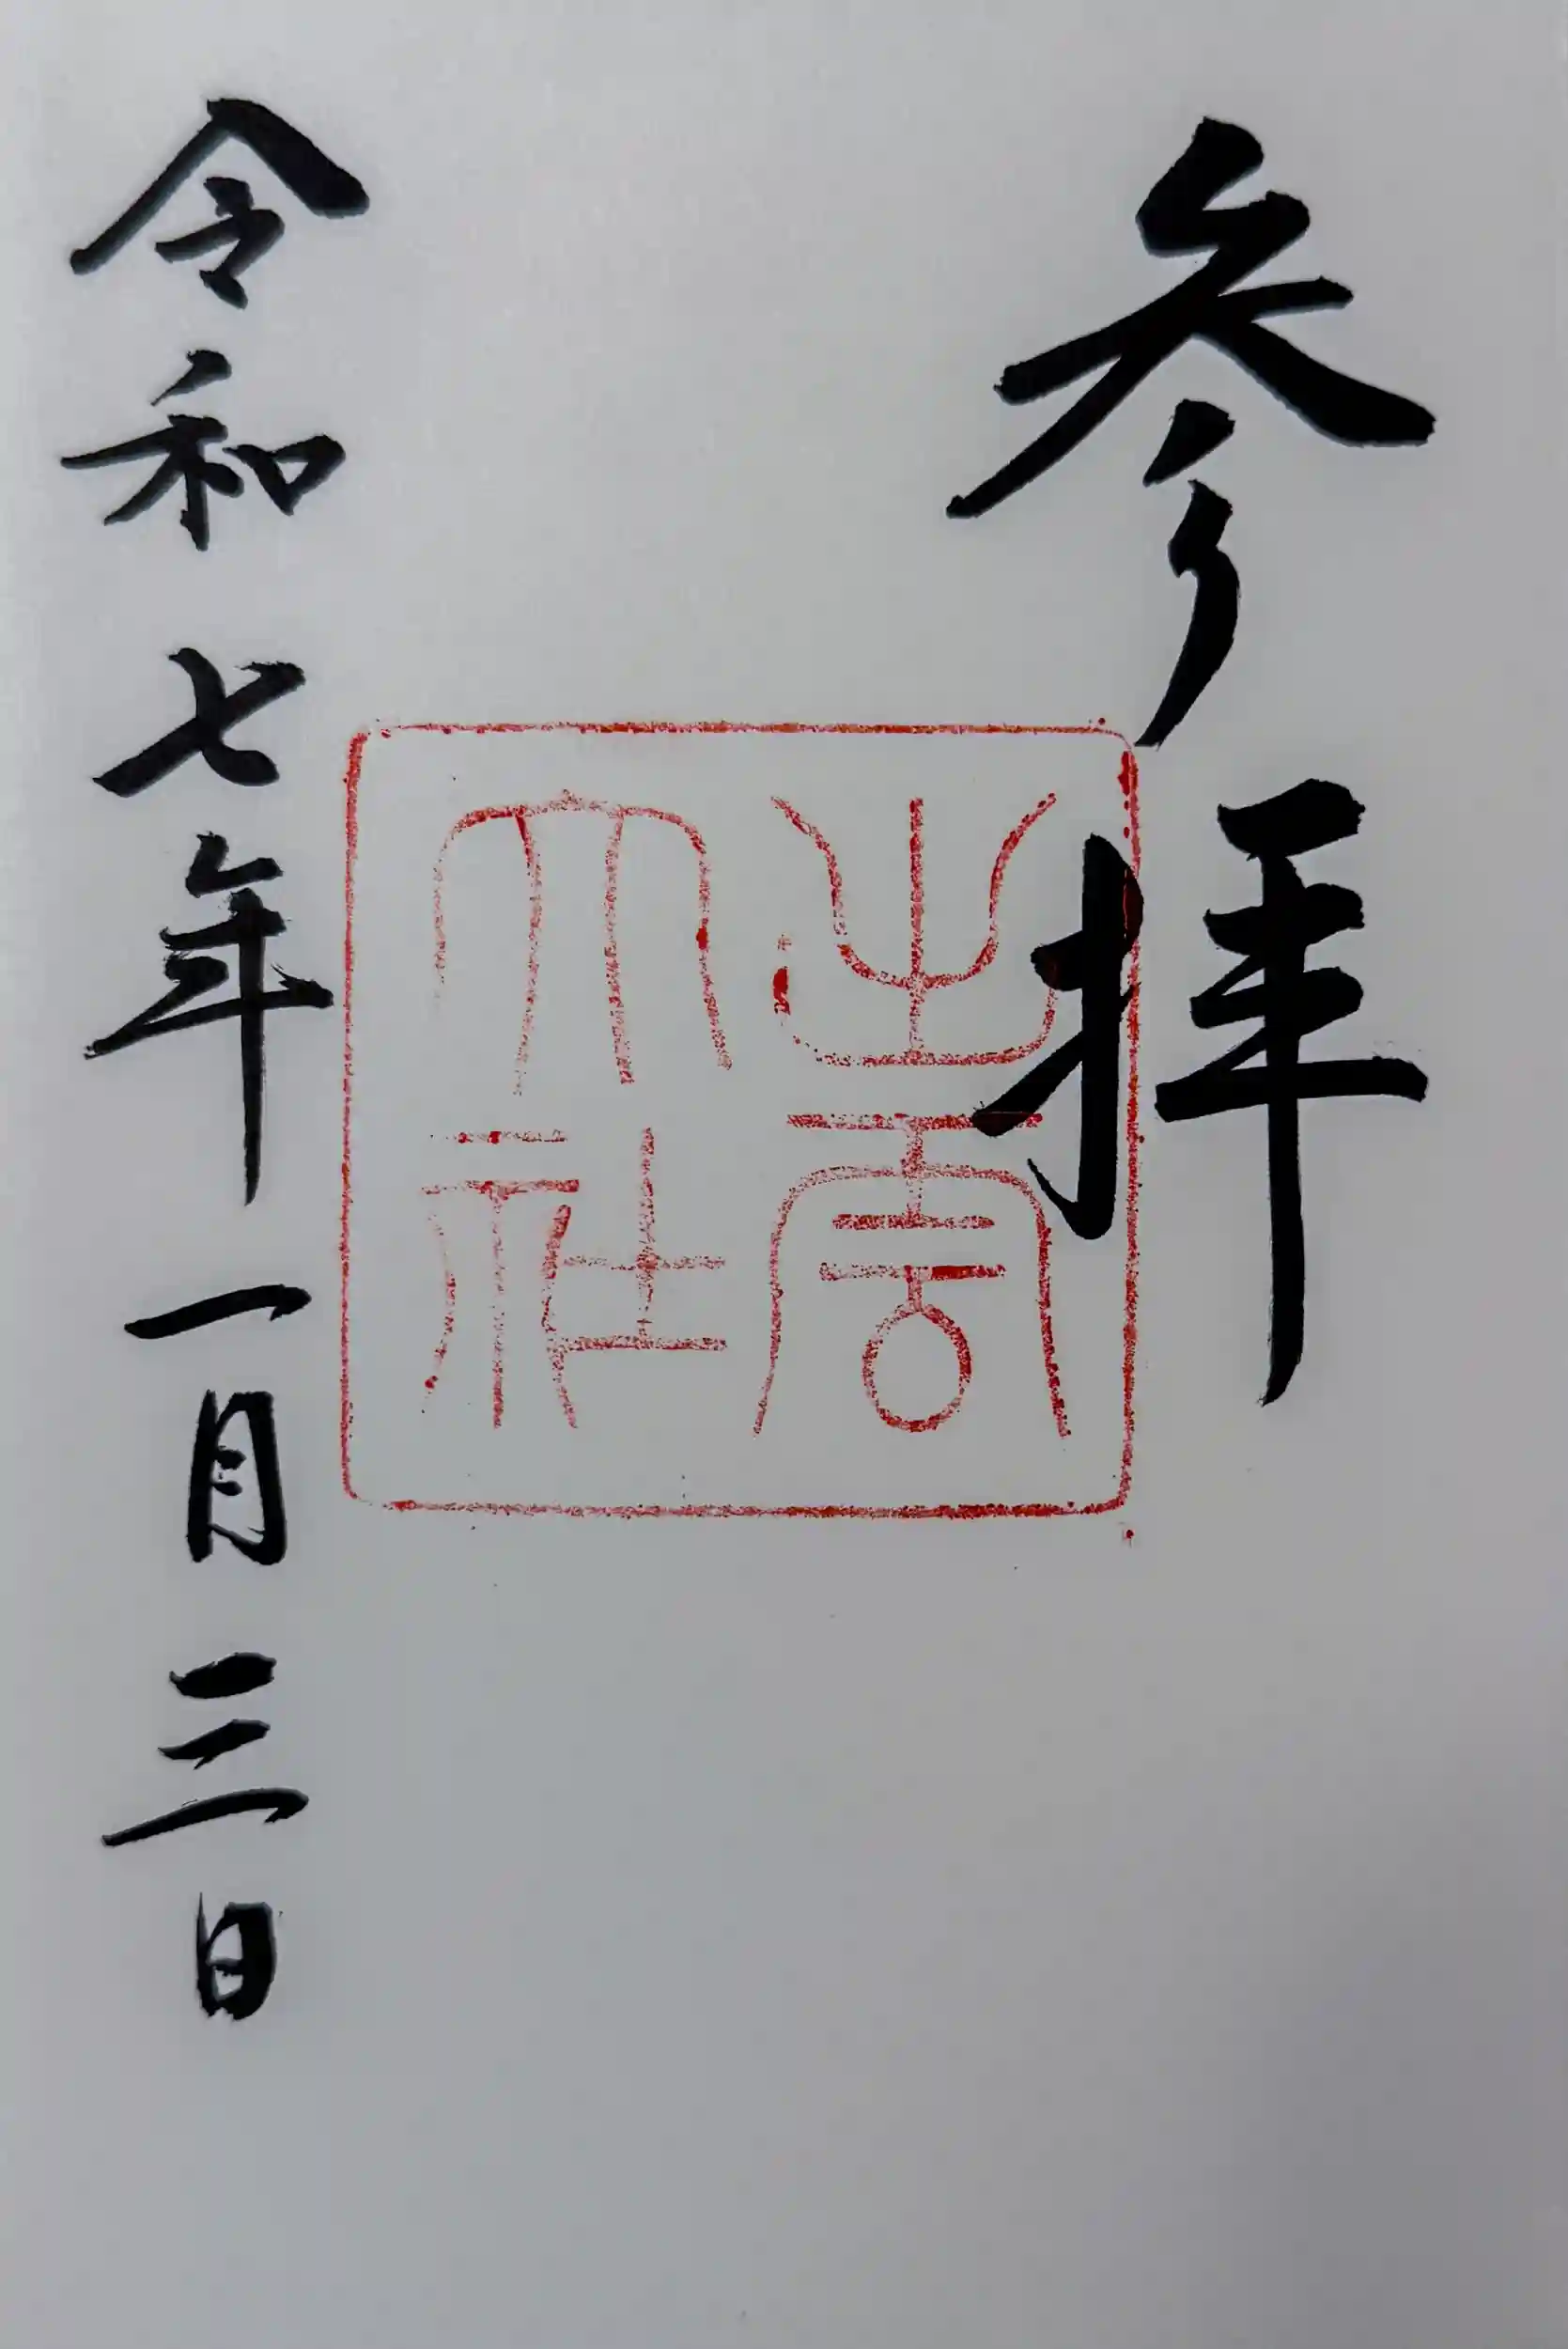 参拝
出雲
大社
令和七年一月三日